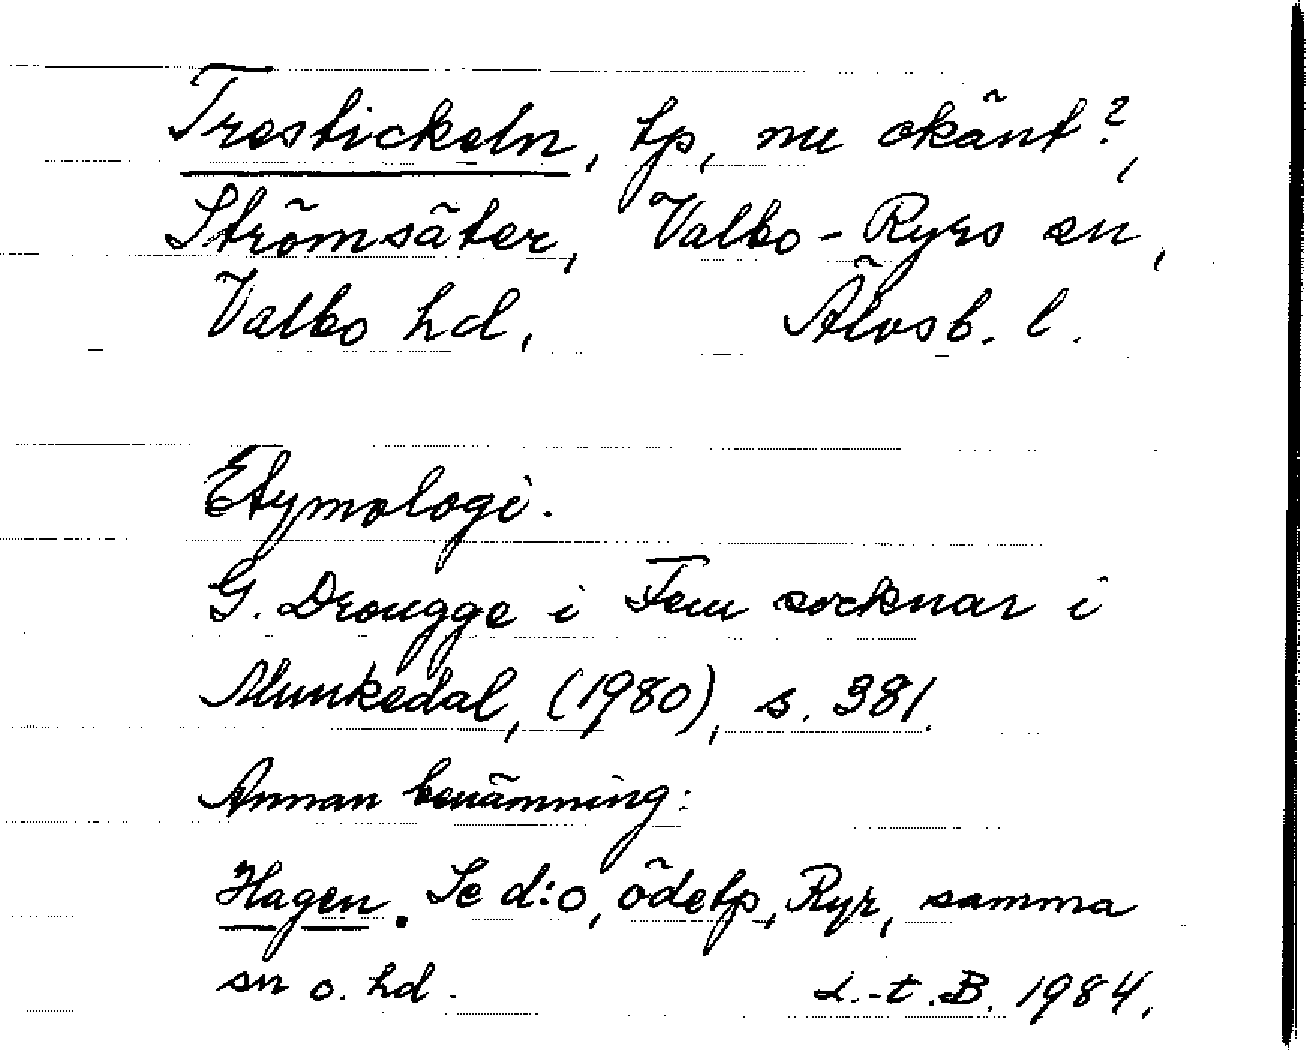 Trestickeln, tp, nu okänt?,
Strömsäter, Valbo-Ryrs sn,
Valbo hd, Älvsb. l.
Etymologi.
G. Drougge i Fem socknar i
Munkedal, (1980), s. 381.
Annan benämning:
Hagen. Se d:o, ödetp, Ryr, samma
sn o. hd. L.-t. B. 1984.